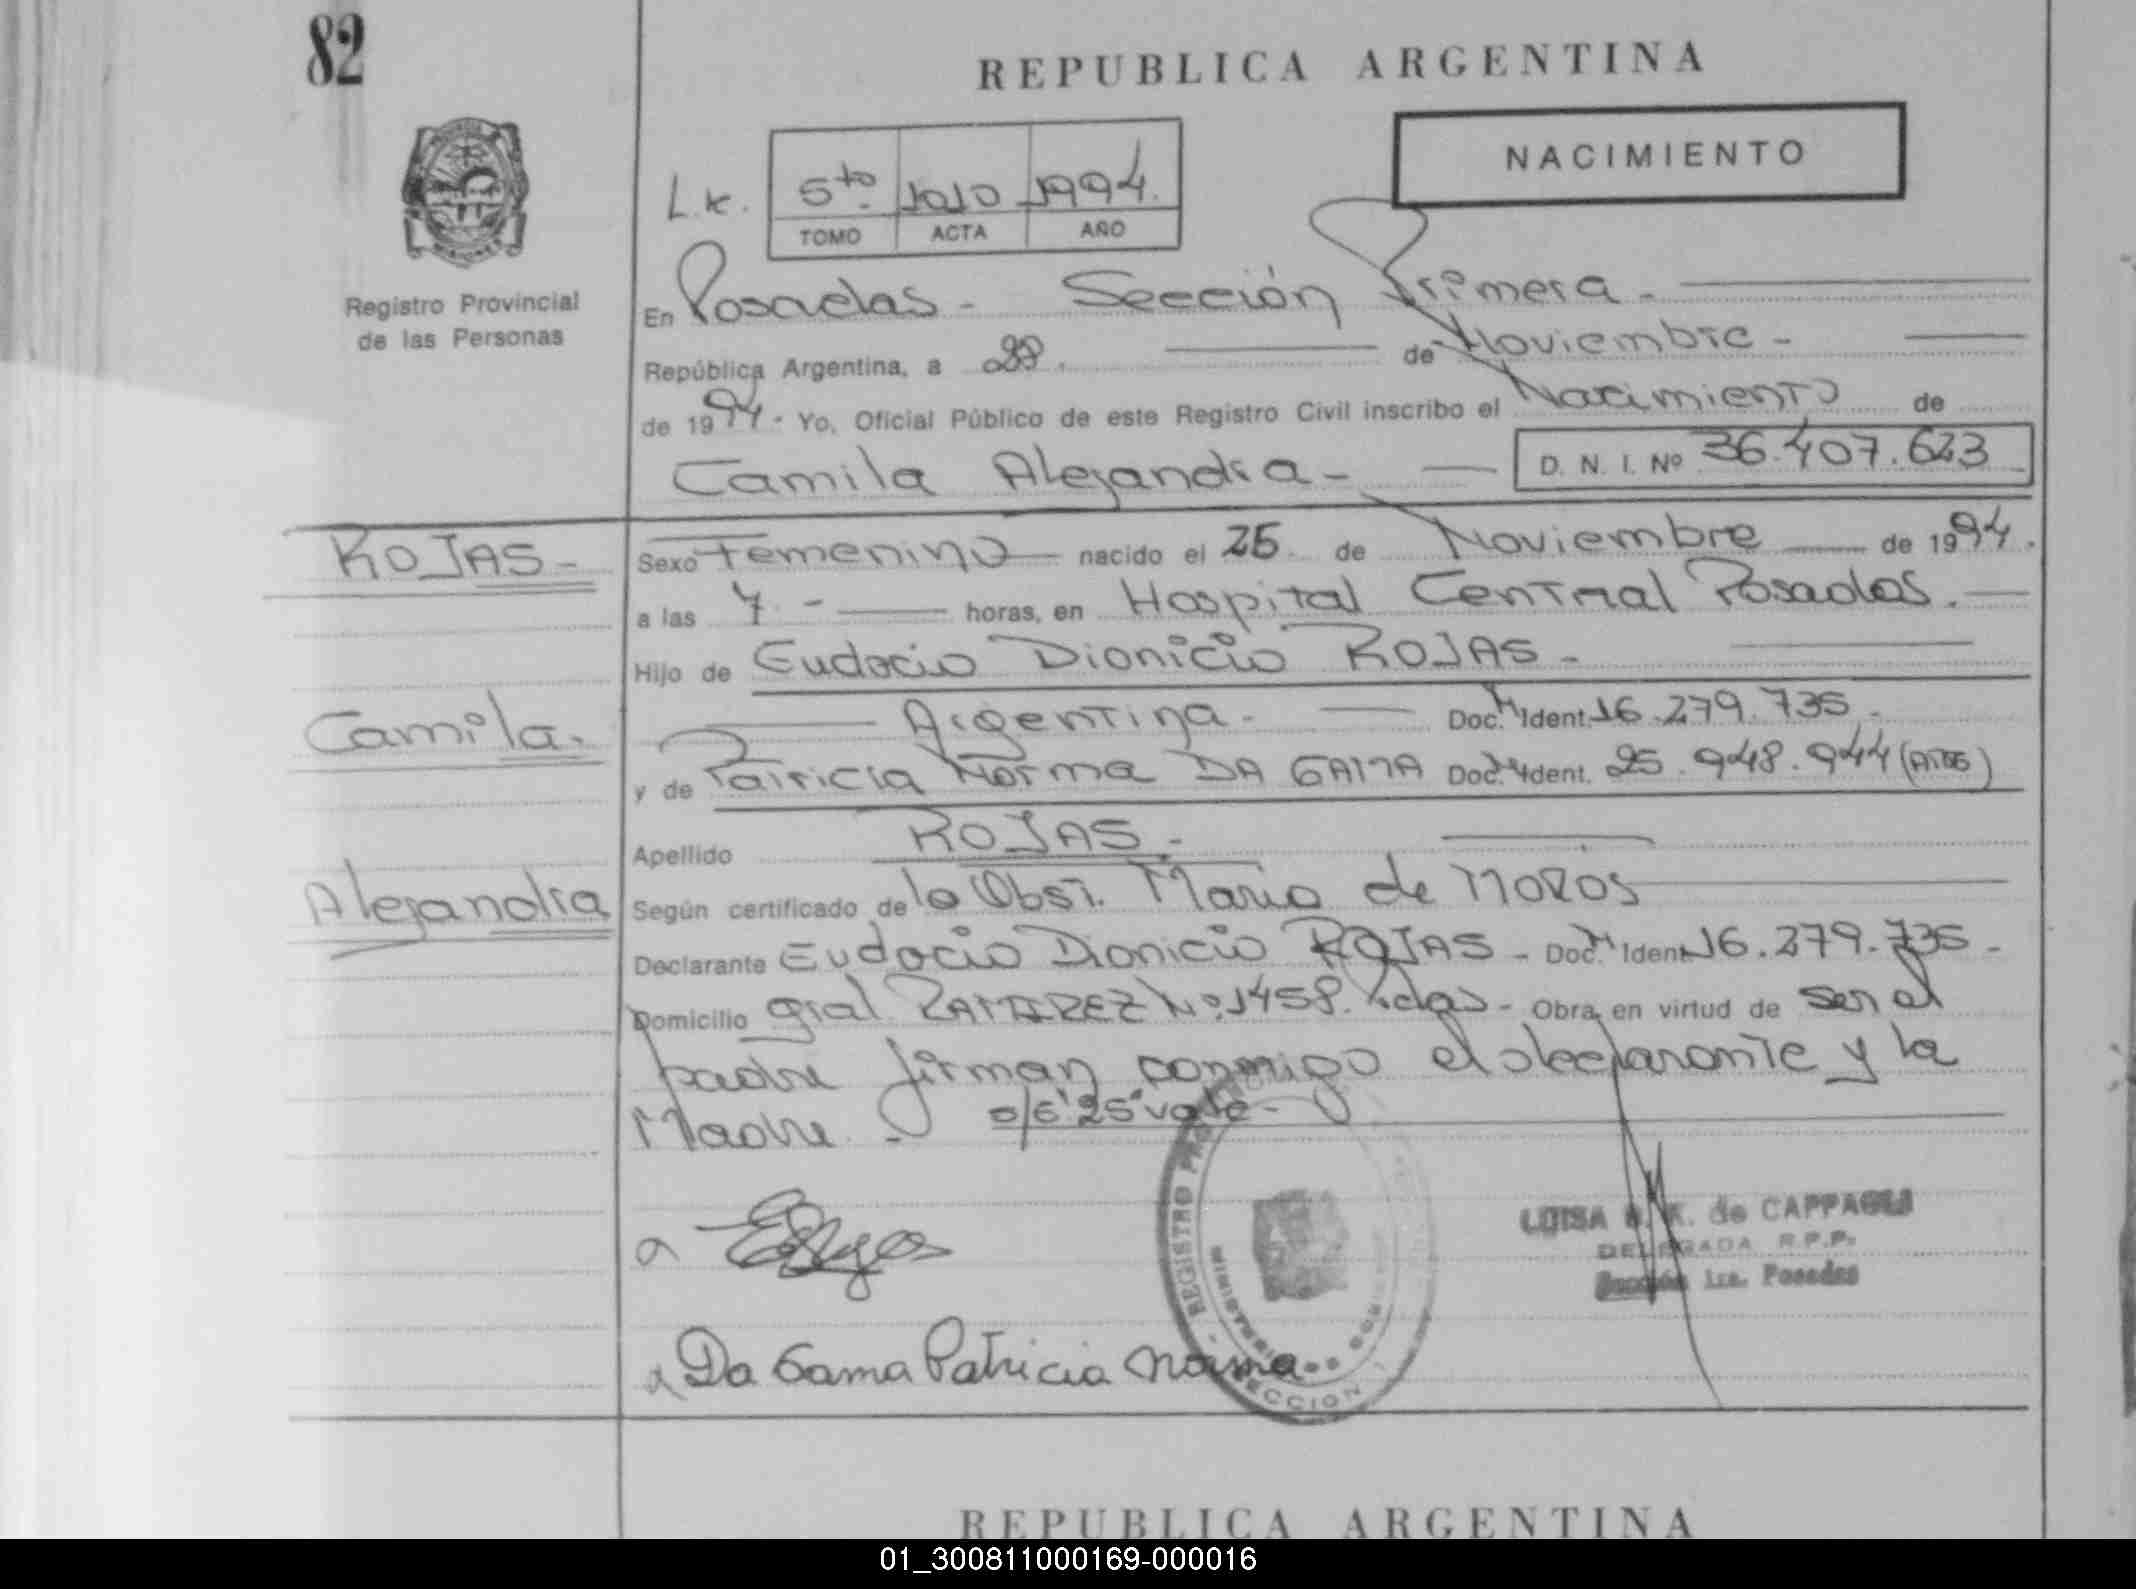 82
REPUBLICA ARGENTINA
NACIMIENTO
L.K. 5to. 1010 1994.
TOMO ACTA AÑO
Registro Provincial
de las Personas
En Posadas - Sección Primera -
República Argentina, a 28. de Noviembre -
de 1994 - Yo, Oficial Público de este Registro Civil inscribo el Nacimiento de
Camila Alejandra - D. N. I. Nº 36.407.623
ROJAS -
Camila.
Alejandra
Sexo Femenino nacido el 25 de Noviembre de 1994.
a las 7 - horas, en Hospital Central Posadas.
Hijo de Eudocio Dionicio ROJAS -
Argentina - Doc. Ident. 16.279.735.
y de Patricia Norma DA GAMA Doc. Ident. 25.948.944
Apellido ROJAS. -
Según certificado de la Obst. Maria de
Declarante Eudocio Dionicio ROJAS - Doc. Ident. 16.279.735 -
Domicilio gral RAMIREZ Nº. 1458. Pdas - Obra en virtud de ser el
padre firman conmigo el declarante y la
Madre. - s/e "25" vale -
LUISA K. de CAPPAGLI
DELEGADA R.P.P.
Sección 1ra. Posadas
a
a Da Gama Patricia Norma
REGISTRO
MINISTERIO DE
SECCION 1
REPUBLICA ARGENTINA
01_300811000169-000016